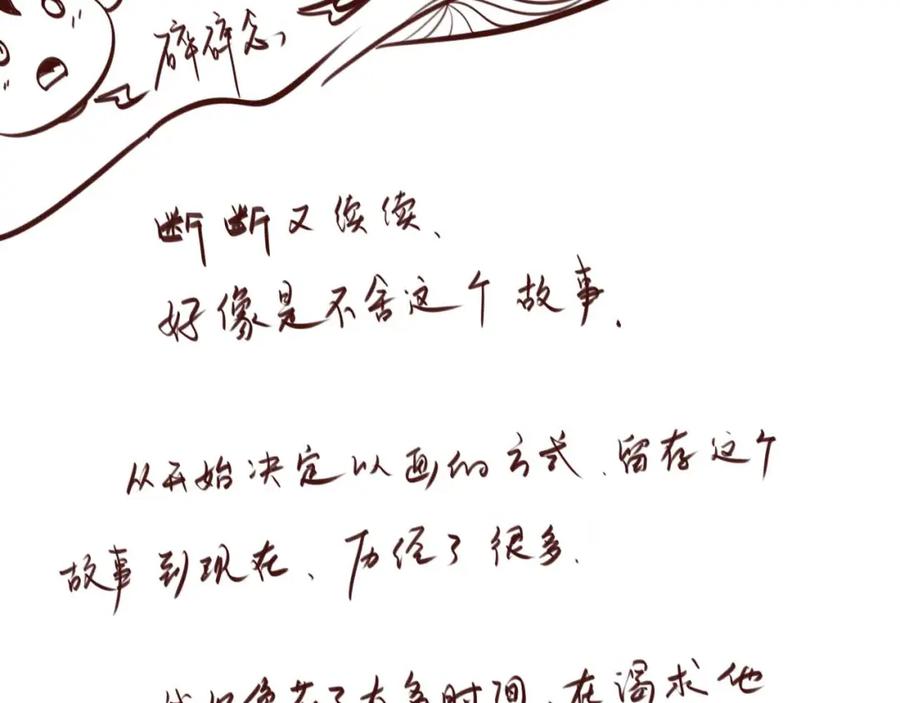 碎碎念、
断断又续续、
好像是不舍这个故事.
从开始决定以画的方式.留存这个
故事到现在、历经了很多.
像花了太多时间、在渴求他